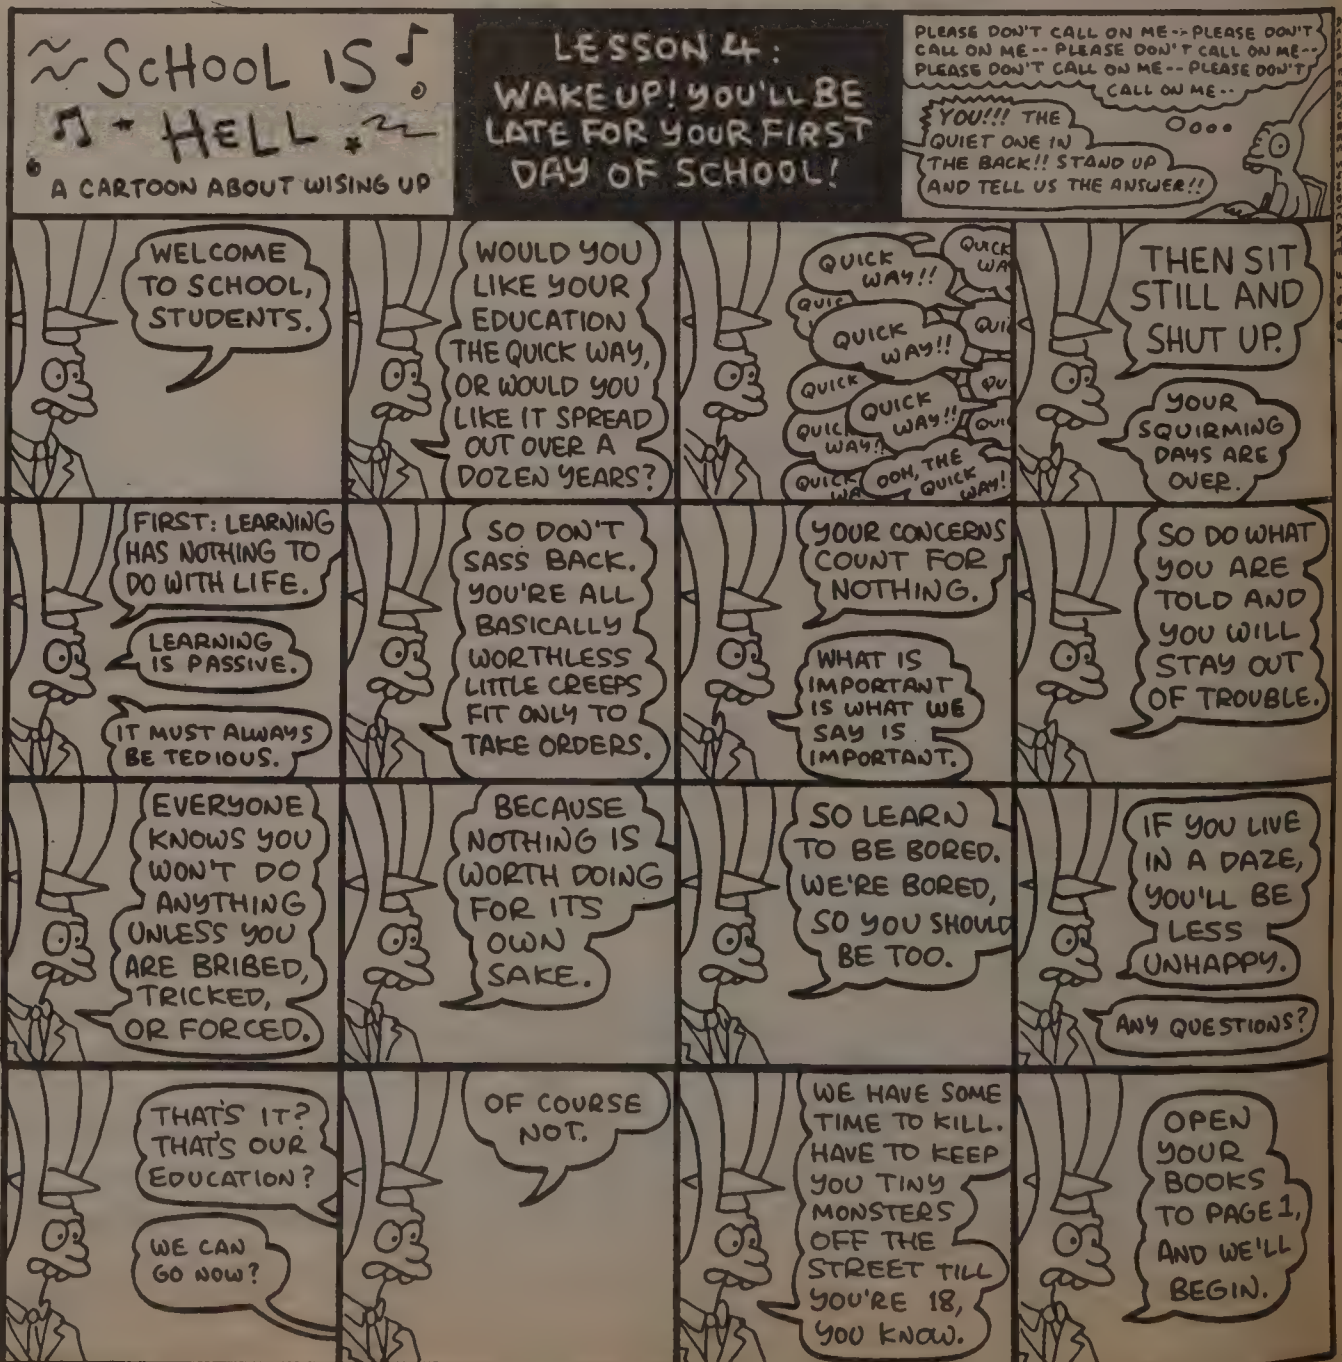 SCHOOL IS
HELL
A CARTOON ABOUT WISING UP
LESSON 4:
WAKE UP! YOU'LL BE
LATE FOR YOUR FIRST
DAY OF SCHOOL!
PLEASE DON'T CALL ON ME-- PLEASE DON'T
CALL ON ME-- PLEASE DON'T CALL ON ME--
PLEASE DON'T CALL ON ME-- PLEASE DON'T
CALL ON ME--
YOU!!! THE
QUIET ONE IN
THE BACK!! STAND UP
AND TELL US THE ANSWER!!
WELCOME
TO SCHOOL,
STUDENTS.
WOULD YOU
LIKE YOUR
EDUCATION
THE QUICK WAY,
OR WOULD YOU
LIKE IT SPREAD
OUT OVER A
DOZEN YEARS?
QUICK
WAY!!
QUICK
WA
QUIC
QUICK
WAY!!
QUI
QUICK
QU
QUICK
WAY!!
QUICK
WAY!!
QUI
QUICK
WA
OOH, THE
QUICK
WAY!
THEN SIT
STILL AND
SHUT UP.
YOUR
SQUIRMING
DAYS ARE
OVER.
FIRST: LEARNING
HAS NOTHING TO
DO WITH LIFE.
LEARNING
IS PASSIVE.
IT MUST ALWAYS
BE TEDIOUS.
SO DON'T
SASS BACK.
YOU'RE ALL
BASICALLY
WORTHLESS
LITTLE CREEPS
FIT ONLY TO
TAKE ORDERS.
YOUR CONCERNS
COUNT FOR
NOTHING.
WHAT IS
IMPORTANT
IS WHAT WE
SAY IS
IMPORTANT.
SO DO WHAT
YOU ARE
TOLD AND
YOU WILL
STAY OUT
OF TROUBLE.
EVERYONE
KNOWS YOU
WON'T DO
ANYTHING
UNLESS YOU
ARE BRIBED,
TRICKED,
OR FORCED.
BECAUSE
NOTHING IS
WORTH DOING
FOR ITS
OWN
SAKE.
SO LEARN
TO BE BORED.
WE'RE BORED,
SO YOU SHOULD
BE TOO.
IF YOU LIVE
IN A DAZE,
YOU'LL BE
LESS
UNHAPPY.
ANY QUESTIONS?
THAT'S IT?
THAT'S OUR
EDUCATION?
WE CAN
GO NOW?
OF COURSE
NOT.
WE HAVE SOME
TIME TO KILL.
HAVE TO KEEP
YOU TINY
MONSTERS
OFF THE
STREET TILL
YOU'RE 18,
YOU KNOW.
OPEN
YOUR
BOOKS
TO PAGE 1,
AND WE'LL
BEGIN.